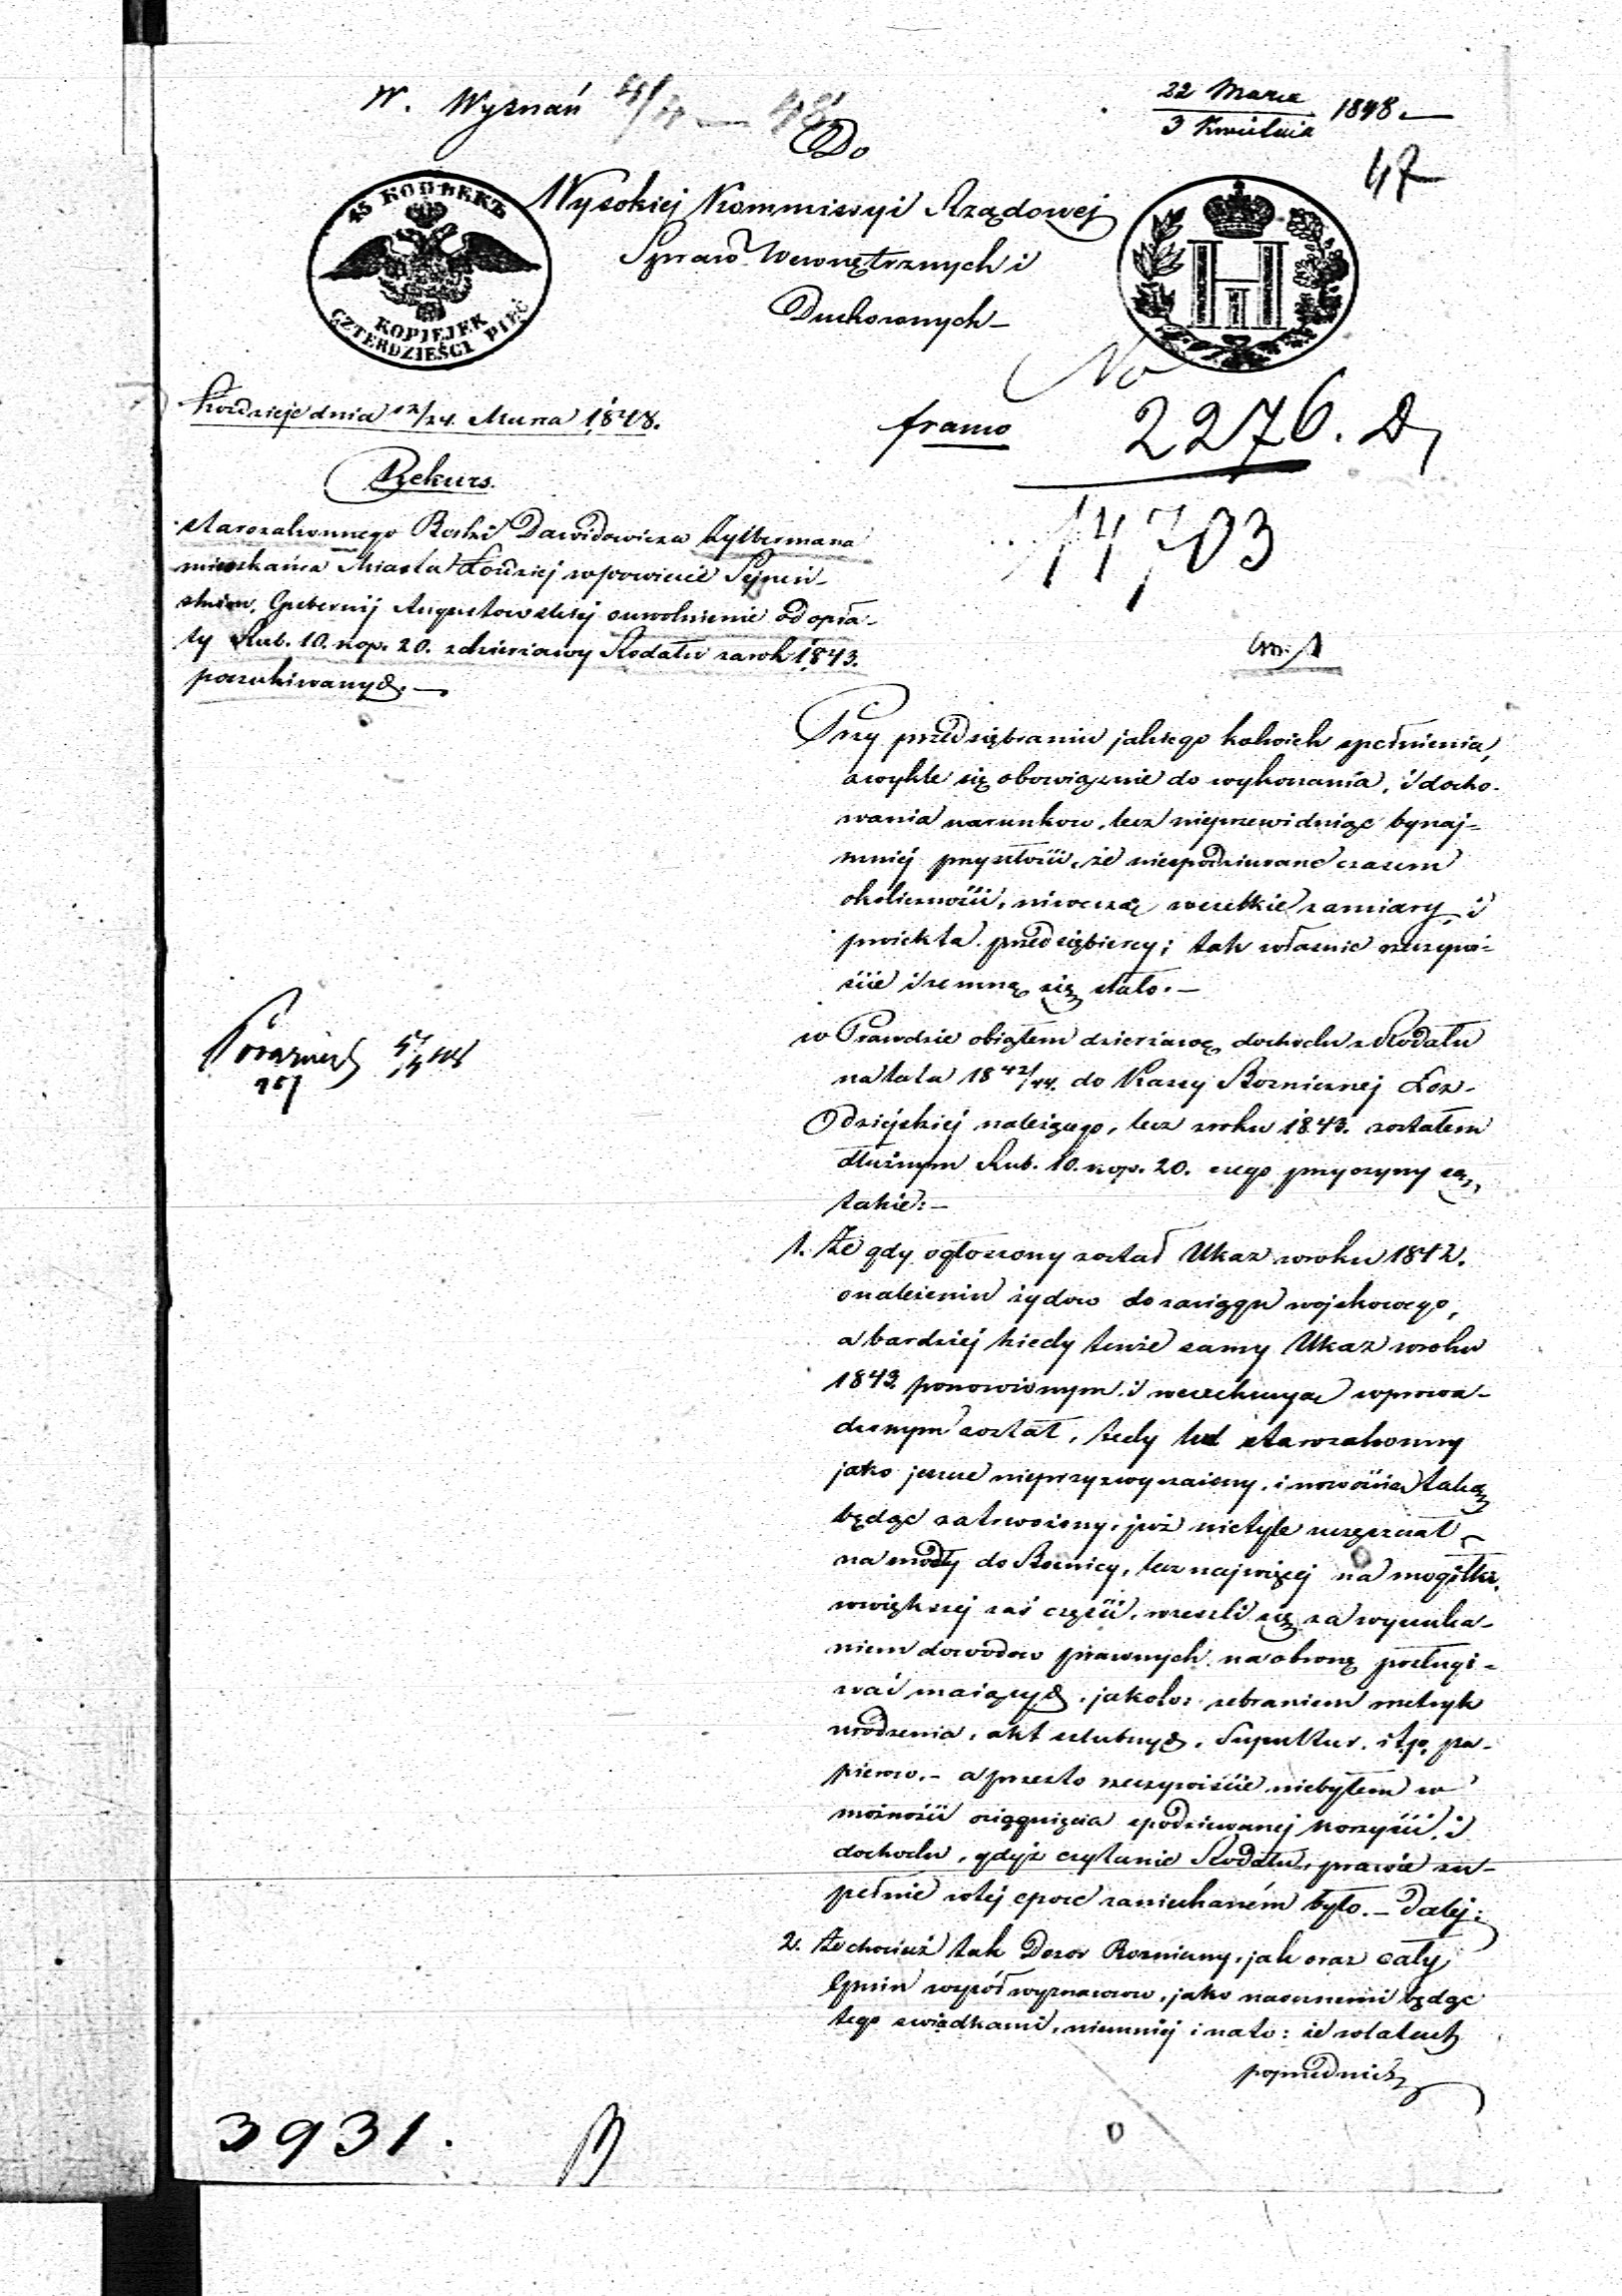 W. Wyznań 4/4 — 48
22 Marca
3 Kwietnia 1848. —
47
Do
Wysokiej Kommissyi Rządowej
Spraw Wewnętrznych i
Duchownych —
45 КОПѢЕКЪ
KOPIEJEK
CZTERDZIEŚCI PIĘĆ
Н I
No
2276. D
14703
Łoździeje dnia 12/24. Marca 1848.
franco
Rekurs.
starozakonnego Dawidowicza Zylbermana
mieszkańca Miasta Łoździej w powiecie Sejneń-
skim, Gubernij Augustowskiej o uwolnienie od opła-
ty Rub. 10. kop. 20. z dzierżawy Rodału za rok 1843.
poszukiwanych. —
Przy przedsiębraniu jakiego kolwiek spełnienia,
zwykle się obowiązuie do wykonania, i docho-
wania warunkow, lecz nieprzewidując bynaj-
mniej przyszłości, że niespodziewane czasem
okoliczności, niweczą wszelkie zamiary, i
proiekta przedsiębiercy; tak właśnie rzeczywi-
ście i zemną się stało. —
w Prawdzie obiąłem dzierżawę dochodu z Rodału
na lata 1842/44. do Kassy Bożniczney Łoź-
dziejskiej należącego, lecz z roku 1843. zostałem
dłużnym Rub. 10. kop. 20. czego przyczyny są,
takie: —
1. Że gdy ogłoszony został Ukaz w roku 1842.
o należeniu żydow do zaciągu wojskowego,
a bardziej kiedy tenże samy Ukaz w roku
1843. ponowionym i wprowa-
dzonym został, tedy lud starozakonny
jako jeszcze nieprzyzwyczaiony, i nowością taką
będąc zatrwożony, już nietyle uczęszczał
na modły do Bożnicy, lecz najwięcej na mogiłki,
w większej zaś części, wzieli się za wyszuka-
niem dowodow prawnych na obronę posługi-
wać maiących, jakoto: zebraniem metryk
urodzenia, akt szlubnych, i t.p. pa-
pierow. — a przeto rzeczywiście niebyłem w
możności osiągnięcia spodziewanej korzyści, i
dochodu, gdyż czytanie Rodału, prawie zu-
pełnie w tej epoce zaniechaném było. — Dalej:
2. Że chociaż tak Dozor Bożniczny, jak oraz cały
Gmin wspołwyznawcow, jako naocznemi będąc
tego swiadkami, niemniej i na to: że w latach
poprzednich
3931.